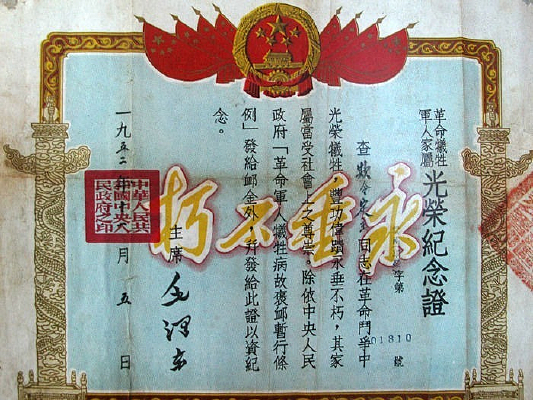 革命犧牲
軍人家屬
光榮紀念證
字第
01810 號
查 同志在革命鬥爭中
光榮犧牲,豐功偉蹟永垂不朽,其家
屬當受社會上之尊崇。除依中央人民
政府「革命軍人犧牲病故褒卹暫行條
例」發給卹金外,并發給此證以資紀
念。
永垂不朽
主席 毛澤東
一九五二年 月五日
中華人民共
和國中央人
民政府之印